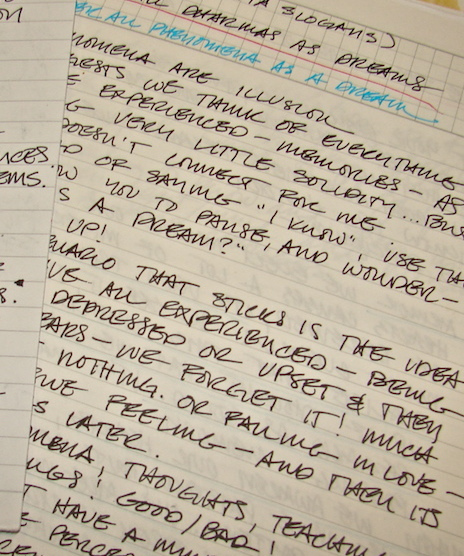 A SLOGANS)
ALL DHARMAS AS DREAMS
ALL PHENOMENA AS A DREAM
NOMENA ARE ILLUSION
ESTS WE THINK OF EVERYTHING
E EXPERIENCED - MEMORIES - AS
G VERY LITTLE SOLIDITY... BUT
DOESN'T CONNECT FOR ME
D OF SAYING "I KNOW", USE TH
W YOU TO PAUSE, AND WONDER -
S A DREAM?"
UP!
NARIO THAT STICKS IS THE IDEA
VE ALL EXPERIENCED - BEING
DEPRESSED OR UPSET & THEN
EARS - WE FORGET IT! MUCH
NOTHING. OR FALLING IN LOVE -
WE FEELING - AND THEN ITS
S LATER.
MENA; THOUGHTS, TEACHIN
NGS! GOOD/BAD!
T HAVE A
E PERCE
NCES.
EMS.
S.